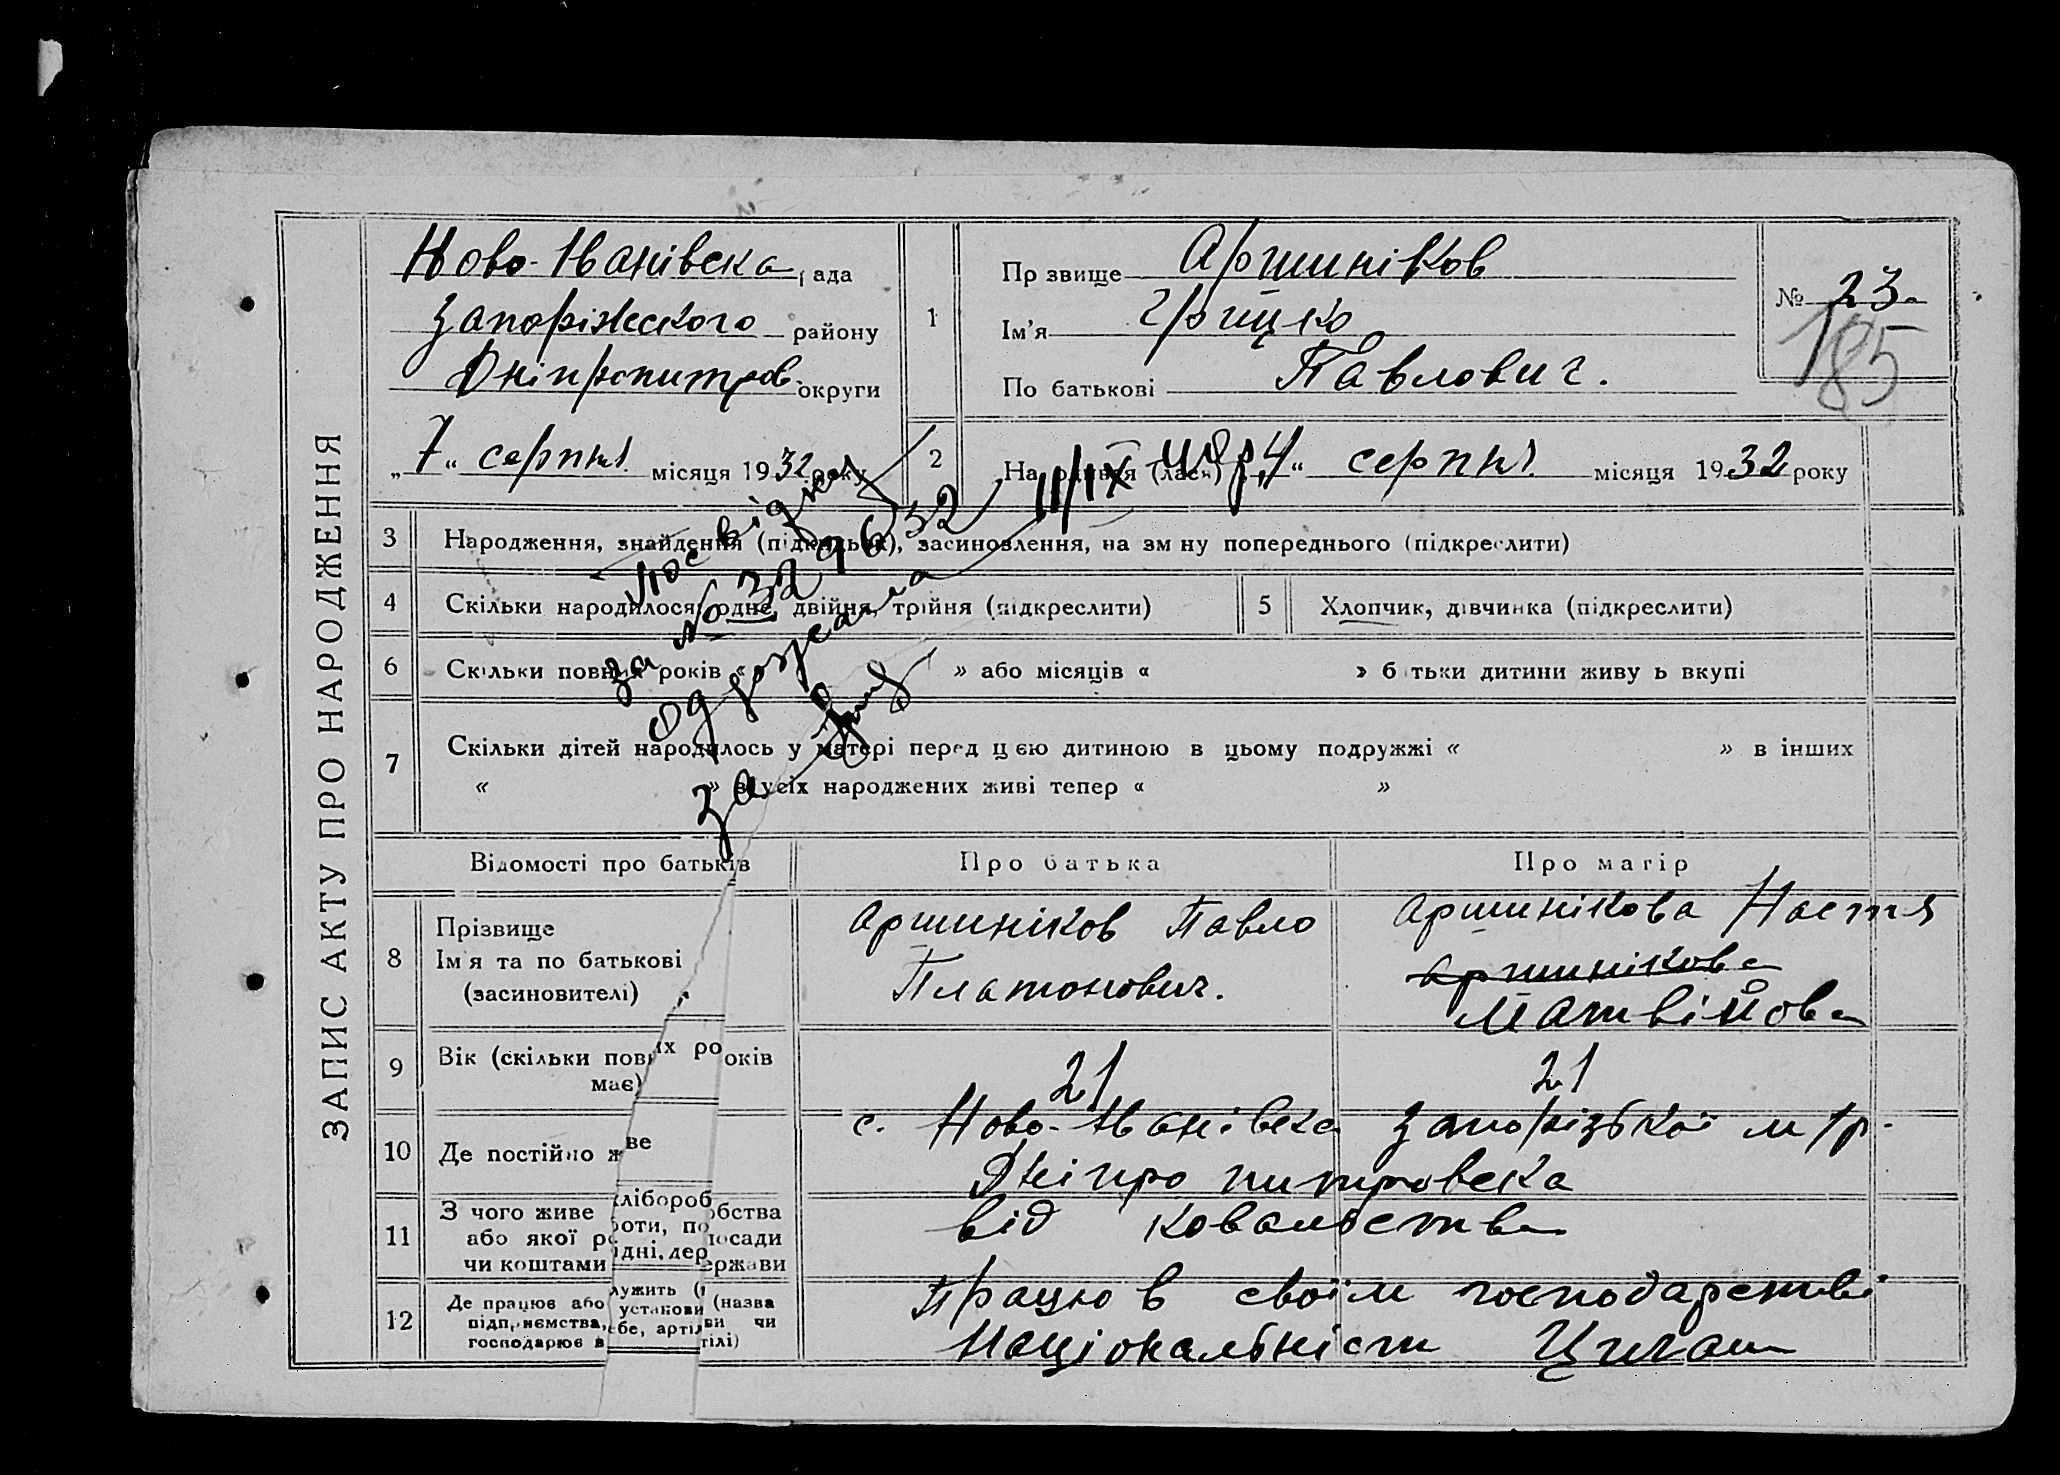 ЗАПИС АКТУ ПРО НАРОДЖЕННЯ
Ново-Іванівска рада
Запоріжского району
Дніпропитров. округи
„7“ серпня місяця 1932 року
1
Пр звище Аршиніков
Ім'я Грицко
По батькові Павлович.
№ 23
185
2
На родився (лася) „4“ серпня місяця 1932 року
Посвідку
за № 329632
одержала 11/IX
за
3 Народження, знайдення (підкидька), засиновлення, на зм ну попереднього (підкреслити)
4 Скільки народилося: одне, двійня, трійня (підкреслити)
5 Хлопчик, дівчинка (підкреслити)
6 Скільки повних років « » або місяців « » б тьки дитини живу ь вкупі
7 Скільки дітей народилось у матері перед ц єю дитиною в цьому подружжі « » в інших
« » з усіх народжених живі тепер « »
Відомості про батьків Про батька Про матір
8 Прізвище
Ім'я та по батькові
(засиновителі)
Аршиніков Павло
Платонович.
Аршинікова Настя
Аршинікова
Матвійова
9 Вік (скільки повних років
має)
21
21
10 Де постійно живе
с. Ново-Іванівка Запорізької м/р.
Дніпропитровска
11 З чого живе хліборобства
або якої роботи, посади
чи коштами рідні, держави
від ковальства
12 Де працює або служить (назва
підприємства, установи чи
господарює в себе, артілі)
Працюв своїм господарстві
Національність Циган